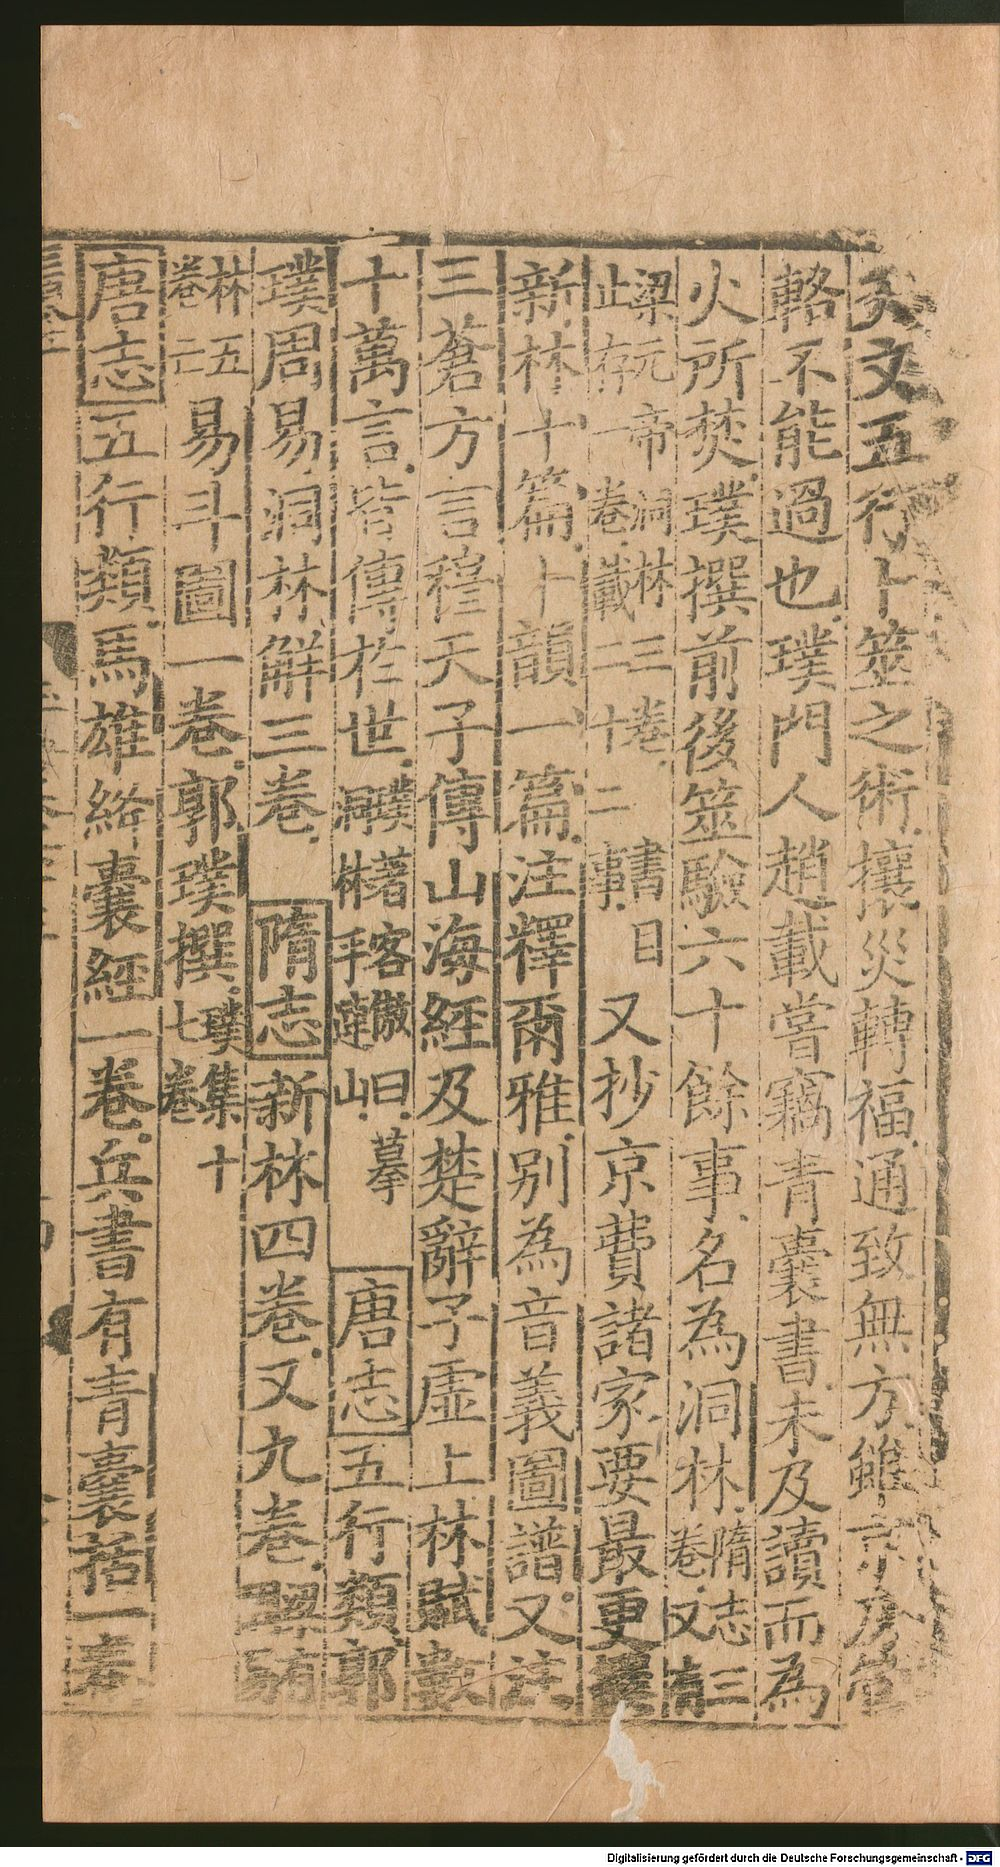 天文五行卜筮之術攘災轉福通致無方雖京房管
輅不能過也璞門人趙載嘗竊青囊書未及讀而為
火所焚璞撰前後筮驗六十餘事名為洞林隋志三卷又有
梁元帝洞林三卷書目止存一卷載二十二事又抄京費諸家要最更撰
新林十篇卜韻一篇注釋爾雅別為音義圖譜又注
三蒼方言穆天子傳山海經及楚辭子虛上林賦數
十萬言皆傳於世璞著客傲曰摹洞林乎連山唐志五行類郭
璞周易洞林解三卷隋志新林四卷又九卷
林五卷二易斗圖一卷郭璞撰璞集十七卷
唐志五行類馬雄絳囊經一卷兵書有青囊括一卷
Digitalisierung gefördert durch die Deutsche Forschungsgemeinschaft - DFG